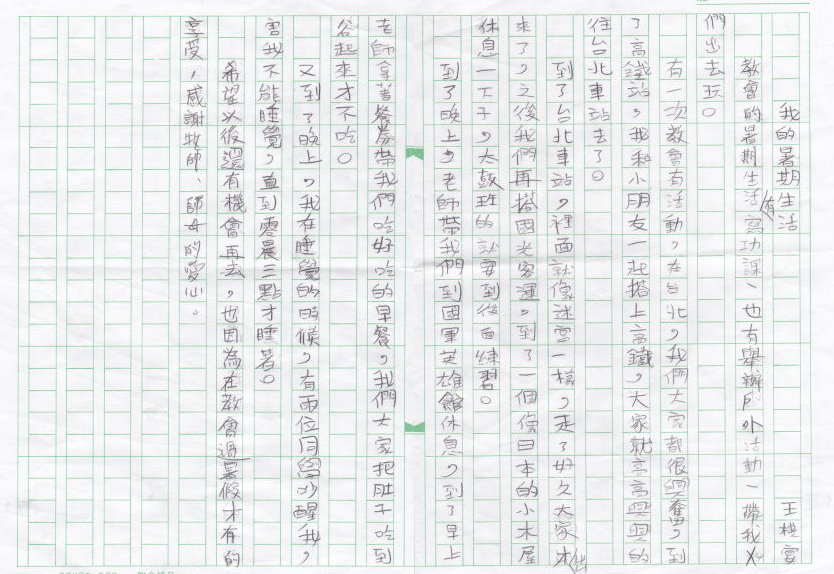 我的暑期生活 王
教會的暑期生活有寫功課、也有舉辦戶外活動、帶我
們出去玩。
有一次教會有活動，在台北，我們大家都很興奮，到
了高鐵站，我和小朋友一起搭上高鐵，大家就高高興興的
往台北車站去了。
到了台北車站，裡面就像迷宮一樣，走了好久大家才出
來了，之後我們再搭國光客運，到了一個像日本的小木屋
休息一下子，太鼓班的就要到後面練習。
到了晚上，老師帶我們到國軍英雄館休息，到了早上
老師拿著餐券帶我們吃好吃的早餐，我們大家把肚子吃到
谷起來才不吃。
又到了晚上，我在睡覺的時候，有兩位同學吵醒我，
害我不能睡覺，直到零晨三點才睡著。
希望以後還有機會再去，也因為在教會過暑假才有的
享受，感謝牧師、師母的愛心。